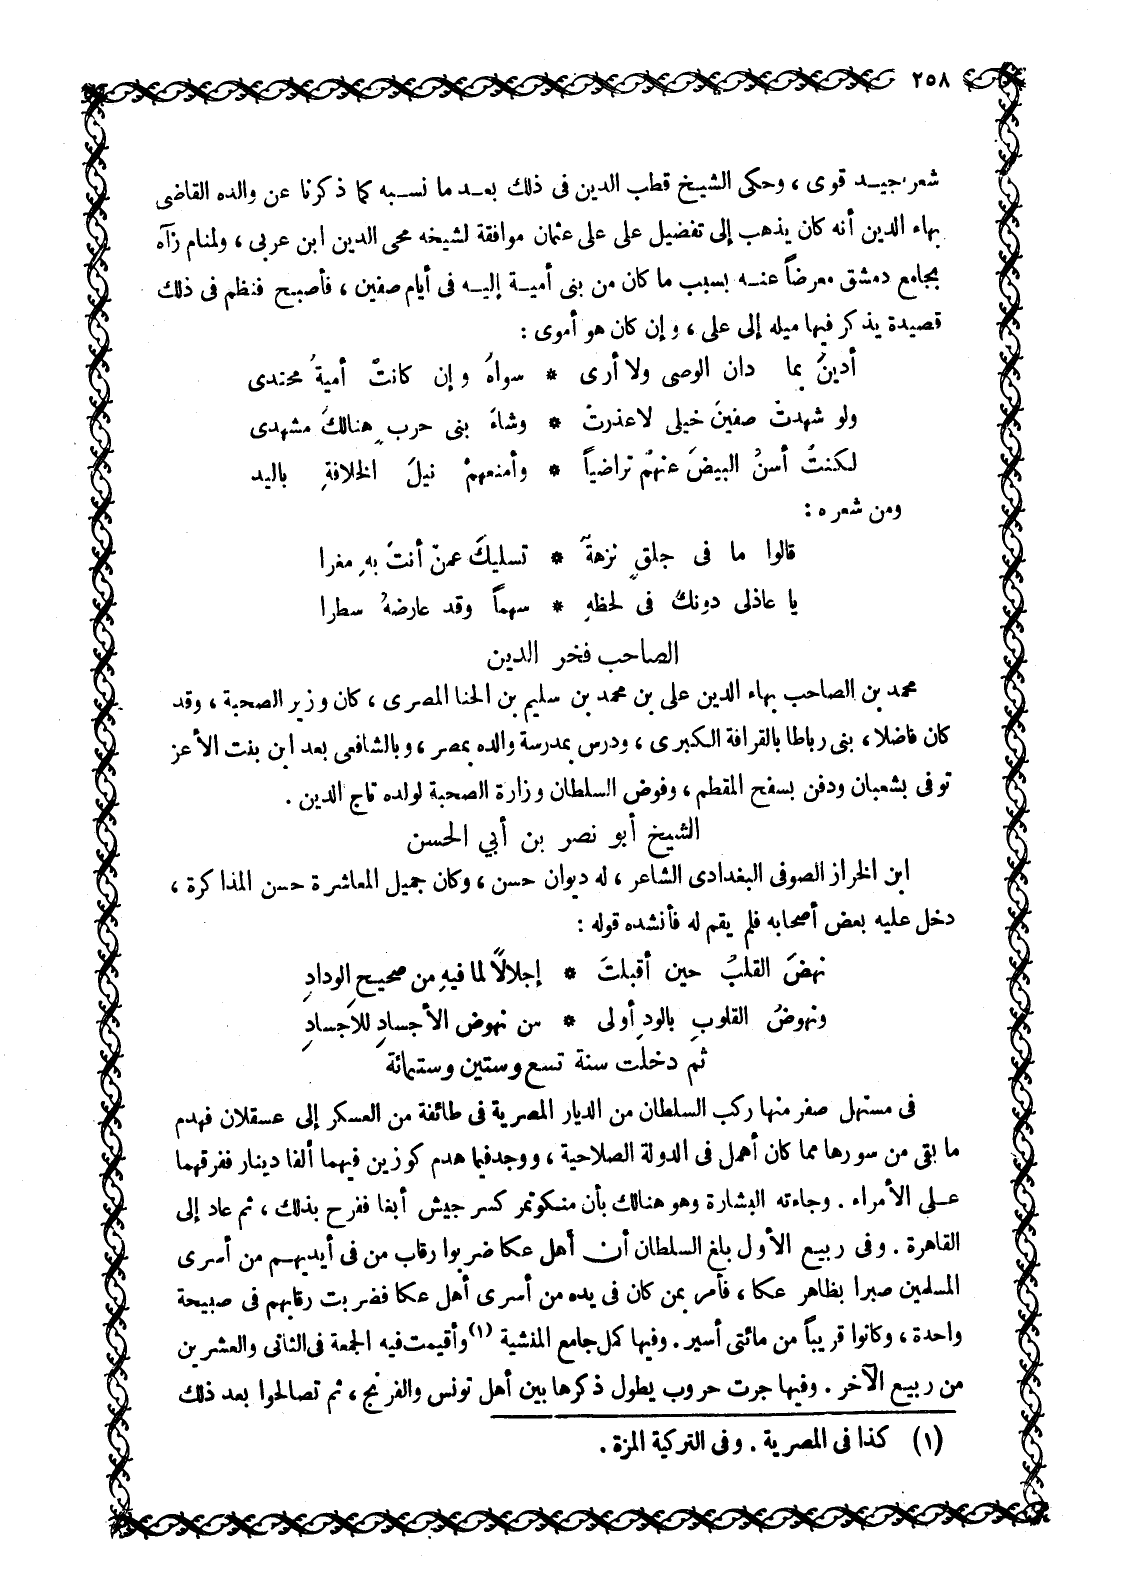 ٢٥٨
شعر جيد قوى ، وحكى الشيخ قطب الدين فى ذلك بعد ما نسبه كما ذكرنا عن والده القاضى
بهاء الدين أنه كان يذهب إلى تفضيل على على عثمان موافقة لشيخه محى الدين ابن عربى ، ولمنام رآه
بجامع دمشق معرضاً عنه بسبب ما كان من بنى أمية إليه فى أيام صفين ، فأصبح فنظم فى ذلك
قصيدة يذكر فيها ميله إلى على ، وإن كان هو أموى :
أدينُ بما دان الوصى ولا أرى * سواهُ وإن كانتْ أميةُ محتدى
ولو شهدتْ صفينَ خيلى لاعذرتْ * وشاءَ بنى حربٍ هنالكَ مشهدى
لكنتُ أسنُ البيضَ عنهمْ تراضياً * وأمنعهمْ نيلَ الخلافةِ باليد
ومن شعره :
قالوا ما فى جلقٍ نزهةٌ * تسليكَ عمنْ أنتَ بهِ مغرا
يا عاذلى دونكَ فى لحظهِ * سهماً وقد عارضهُ سطرا
الصاحب فخر الدين
محمد بن الصاحب بهاء الدين على بن محمد بن سليم بن الحنا المصرى ، كان وزير الصحبة ، وقد
كان فاضلا ، بنى رباطا بالقرافة الكبرى ، ودرس بمدرسة والده بمصر ، وبالشافعى بعد ابن بنت الأعز
توفى بشعبان ودفن بسفح المقطم ، وفوض السلطان وزارة الصحبة لولده تاج الدين .
الشيخ أبو نصر بن أبي الحسن
ابن الخراز الصوفى البغدادى الشاعر ، له ديوان حسن ، وكان جميل المعاشرة حسن المذاكرة ،
دخل عليه بعض أصحابه فلم يقم له فأنشده قوله :
نهضَ القلبُ حين أقبلتَ * إجلالاً لما فيهِ من صحيحِ الودادِ
ونهوضُ القلوبِ بالودِ أولى * من نهوض الأجسادِ للأجسادِ
ثم دخلت سنة تسع وستين وستمائة
فى مستهل صفر منها ركب السلطان من الديار المصرية فى طائفة من العسكر إلى عسقلان فهدم
ما بقى من سورها مما كان أهمل فى الدولة الصلاحية ، ووجدفيما هدم كوزين فيهما ألفا دينار ففرقهما
على الأمراء . وجاءته البشارة وهو هنالك بأن منكوتمر كسر جيش أبغا ففرح بذلك ، ثم عاد إلى
القاهرة . وفى ربيع الأول بلغ السلطان أن أهل عكا ضربوا رقاب من فى أيديهم من أسرى
المسلمين صبرا بظاهر عكا ، فأمر بمن كان فى يده من أسرى أهل عكا فضربت رقابهم فى صبيحة
واحدة ، وكانوا قريباً من مائتى أسير . وفيها كمل جامع المنشية (١) وأقيمت فيه الجمعة فى الثانى والعشرين
من ربيع الآخر . وفيها جرت حروب يطول ذكرها بين أهل تونس والفرنج ، ثم تصالحوا بعد ذلك
(١) كذا فى المصرية . وفى التركية المزة .